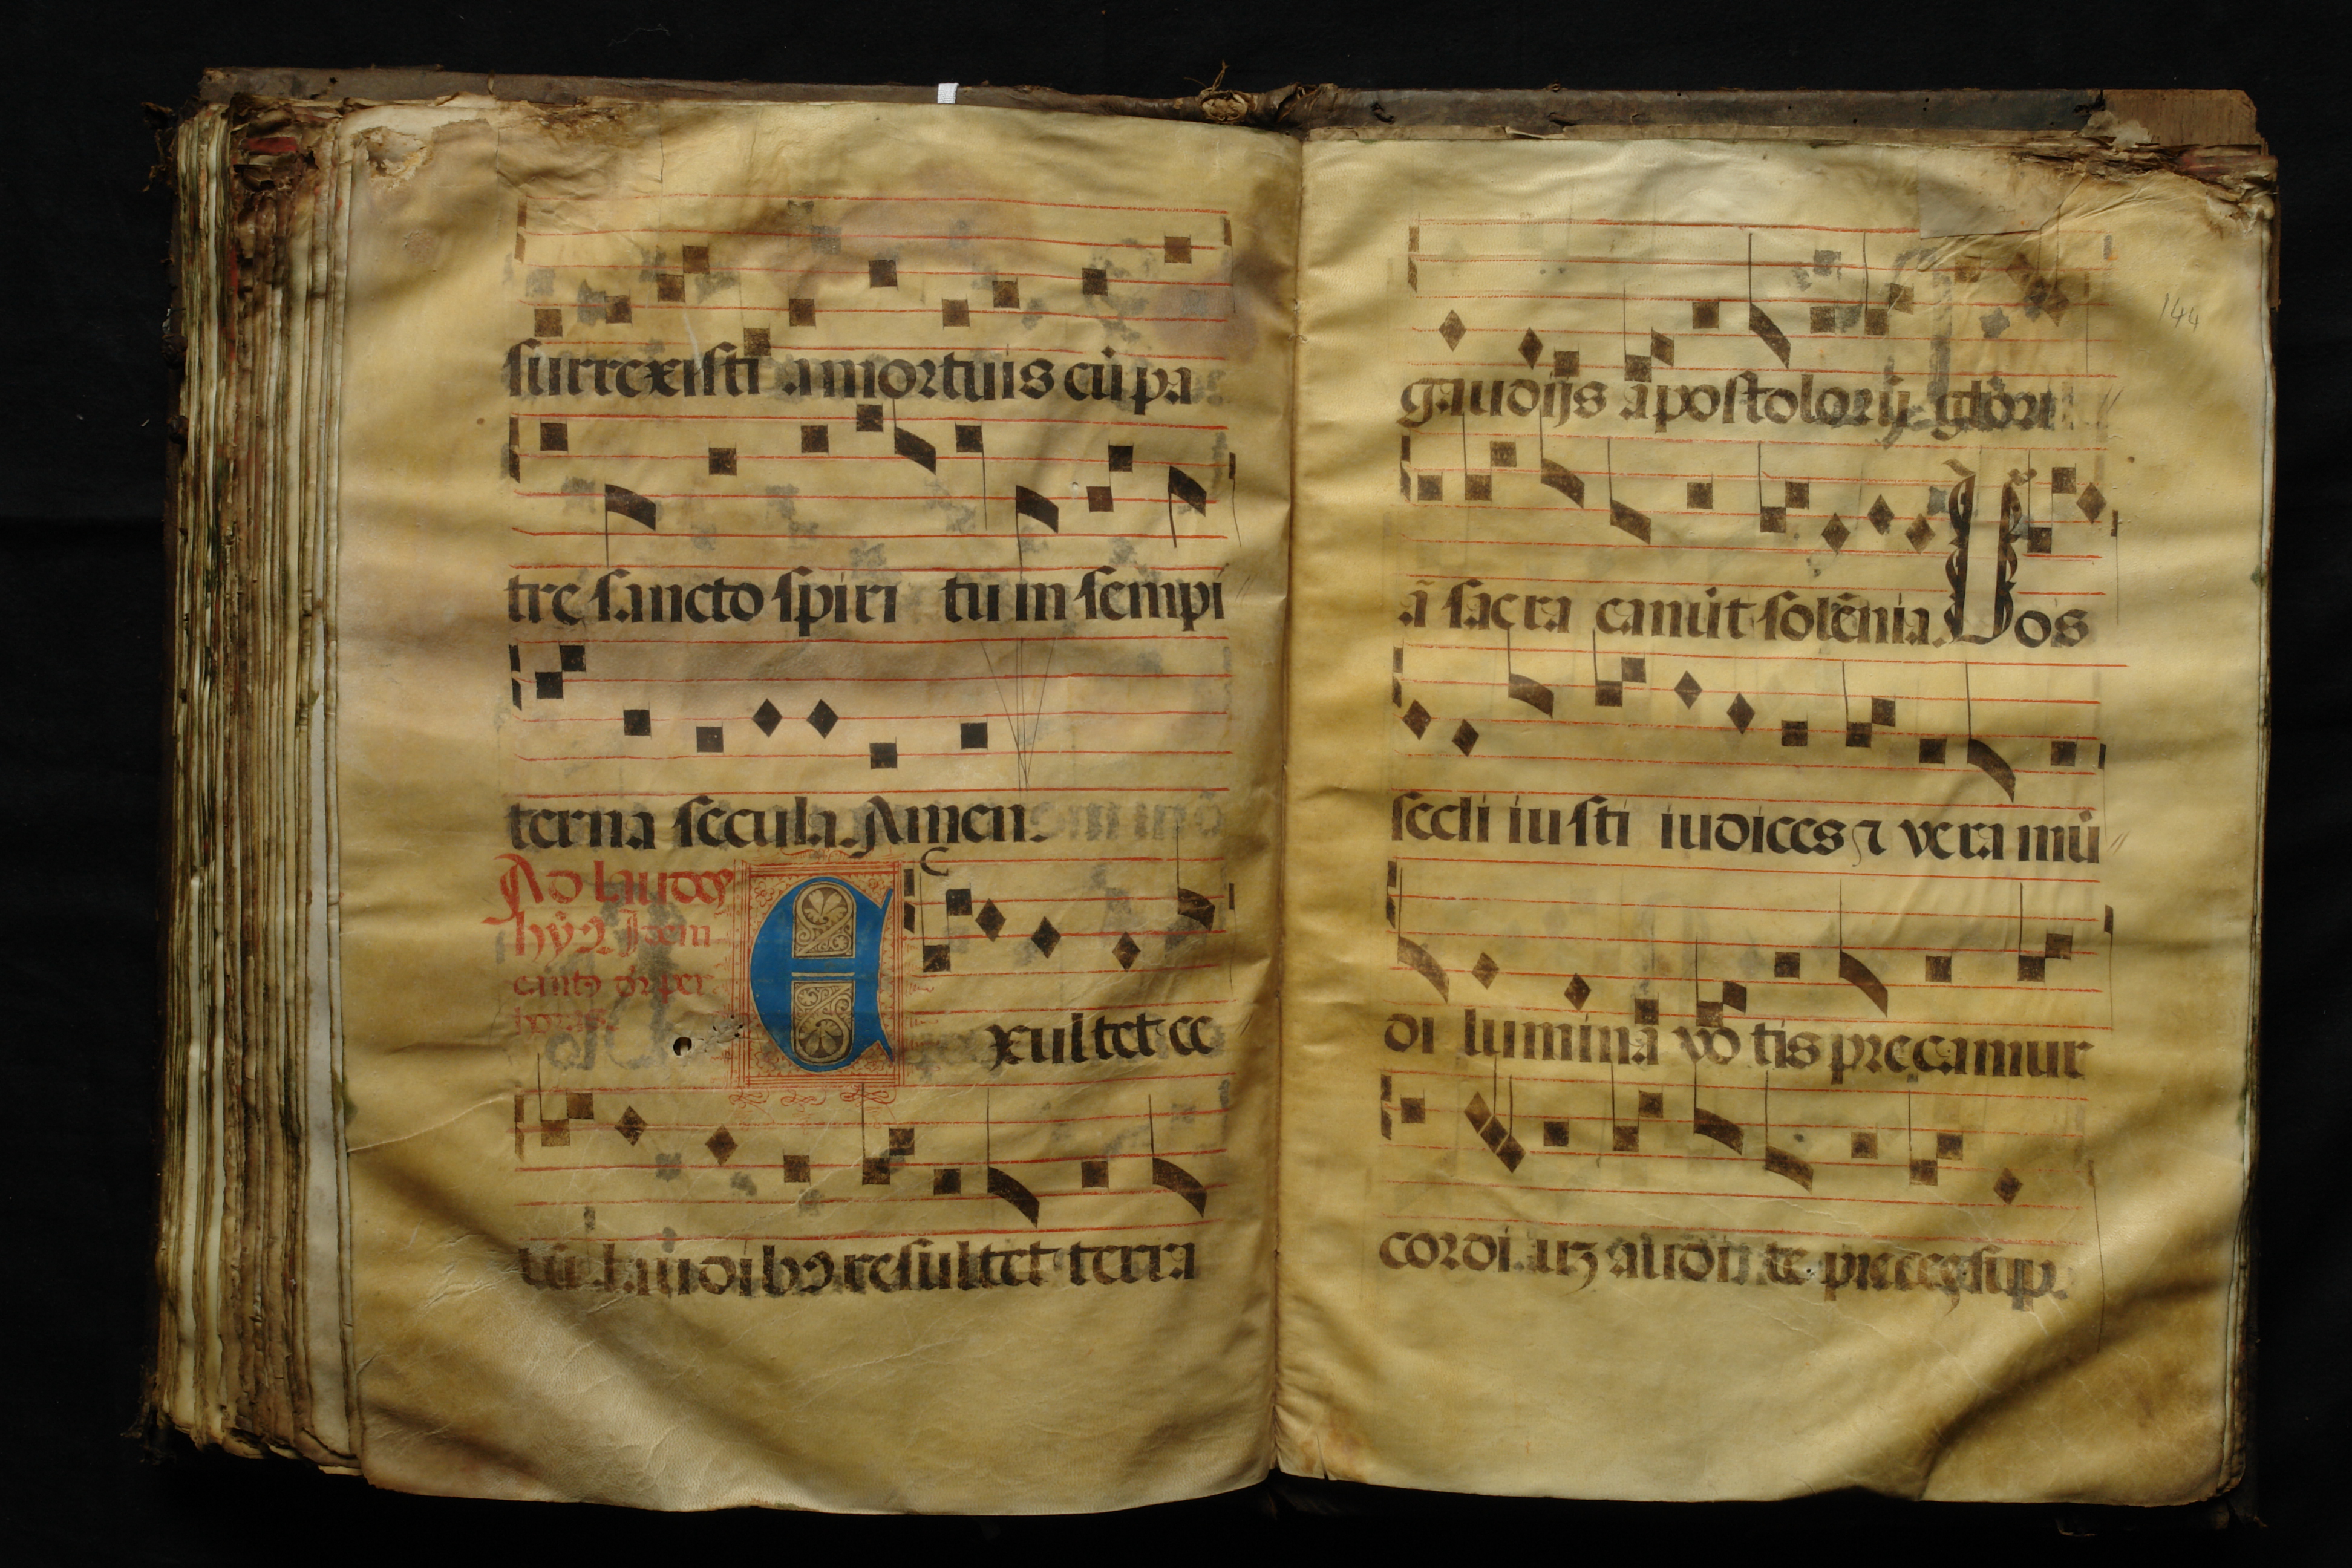 surrexisti a mortuis cũ pa
tre sancto spiri tu in sempi
terna secula. Amen.
Ad laudes
hỹꝰ Idem
cantꝰ
Exultet ce
lũ laudibꝰ resultet terra
144
gaudijs apostolorũ glori
ã sacra canũt solẽnia. Uos
secli iusti iudices ⁊ vera mũ
di lumina vo tis precamur
cordiũꝫ audite preces sup.